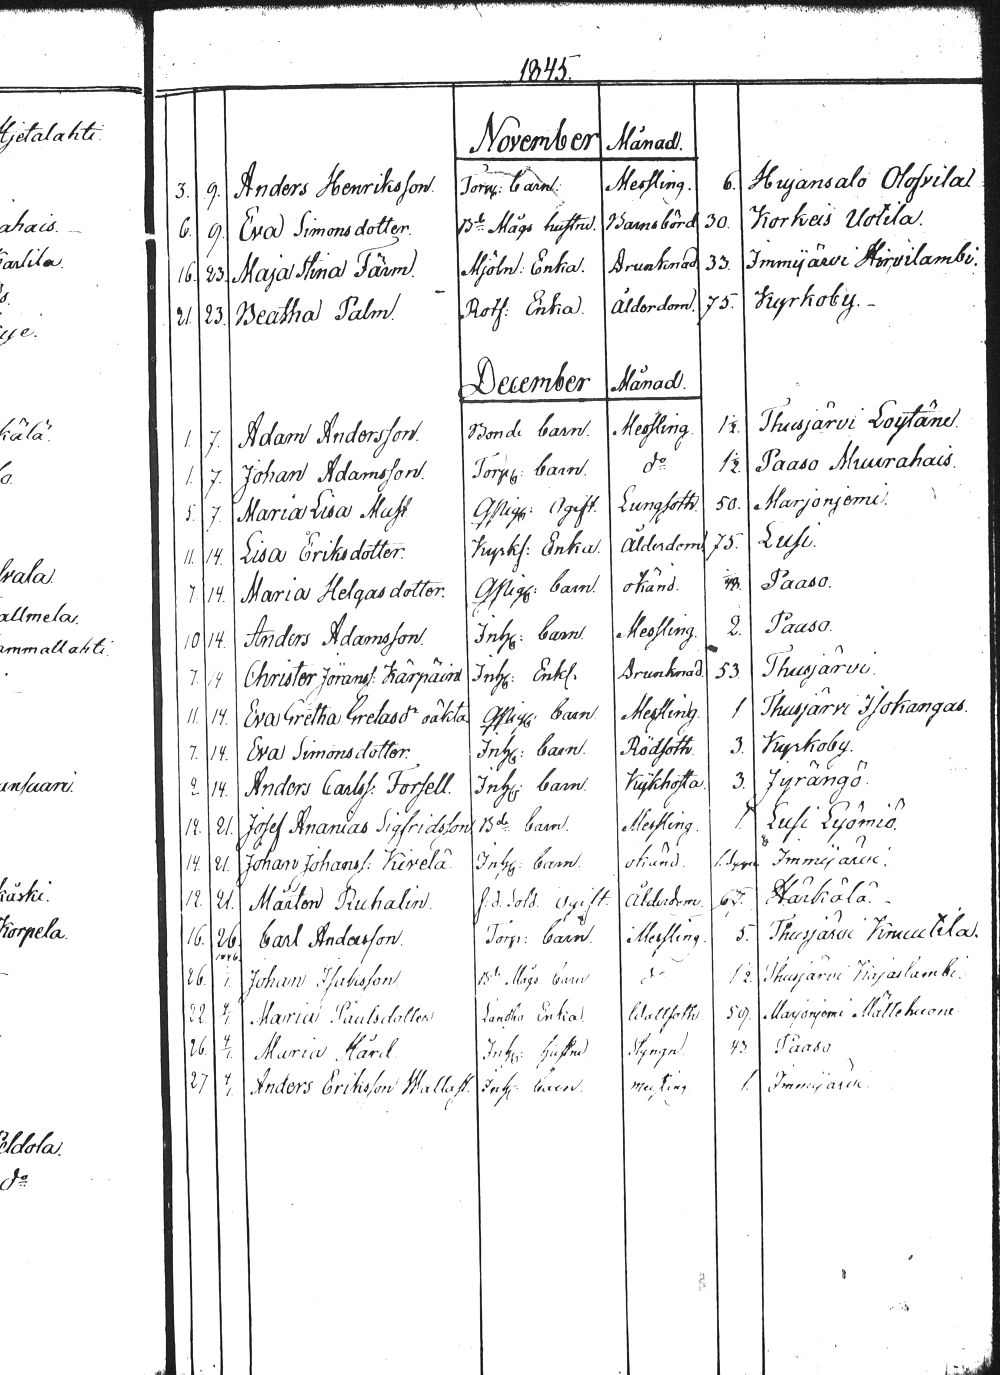 1845.
Hjetalahti.
November Månad.
3. 9. Anders Henriksson. Torp: barn. Messling. 6. Hujansalo Olofvila
6. 9. Eva Simonsdotter. Bde Mågs hustru. Barnsbörd 30. Korkeis Uotila.
16. 23. Maja Stina Färm. Mjöln: Enka. Drunknad 33. Immijärvi Hirvilambi.
21. 23. Beatha Palm. Rotf: Enka. Ålderdom. 75. Kyrkoby.
December Månad.
1. 7. Adam Andersson. Bonde barn. Messling. 1½. Thusjärvi Löytäne.
1. 7. Johan Adamsson. Torp: barn. do 1½. Paaso Muurahais.
5. 7. Maria Lisa Must Ogift. Lungsoth. 50. Marjonjemi.
11. 14. Lisa Eriksdotter. Kyrks: Enka. Ålderdom 75. Lusi.
7. 14. Maria Helgasdotter. barn. okänd. Paaso.
10 14. Anders Adamsson. Inh: barn. Messling. 2. Paaso.
7. 14 Christer Jöranss: Kärpäine Inh: Enkl. Drunknad 53. Thusjärvi.
11. 14. Eva Gretha Gretasdr oäkta barn Messling. 1 Thusjärvi Isokangas.
7. 14. Eva Simonsdotter. Inh: barn. Rödsoth. 3. Kyrkoby.
2. 14. Anders Carlss: Forsell. Inh: barn. Kikhosta. 3. Jyrängö.
12. 21. Josef Ananias Sigfridsson Bde barn. Messling. 1. Lusi Lyömiö.
14. 21. Johan Johanss: Kivelä. Inh: barn. okänd. Immijärvi.
12. 21. Mårten Ruhalin. f.d. Sold. Ogift. Ålderdom. 67. Härkälä.
16. 26. Carl Andersson. Torp: barn. Messling. 5. Thusjärvi Knuutila.
1846.
26. 1. Johan Isaksson Bde Mågs barn do 12. Thusjärvi Kajaslambi.
22. 4/1 Maria Paulsdotter Enka Wattsoth. 59. Marjonjemi
26. 4/1. Maria Hård. Inh: hustru Styngn 43 Paaso
27 4/1 Anders Eriksson Wallast. Inh: barn. messling 1. Immijärvi.